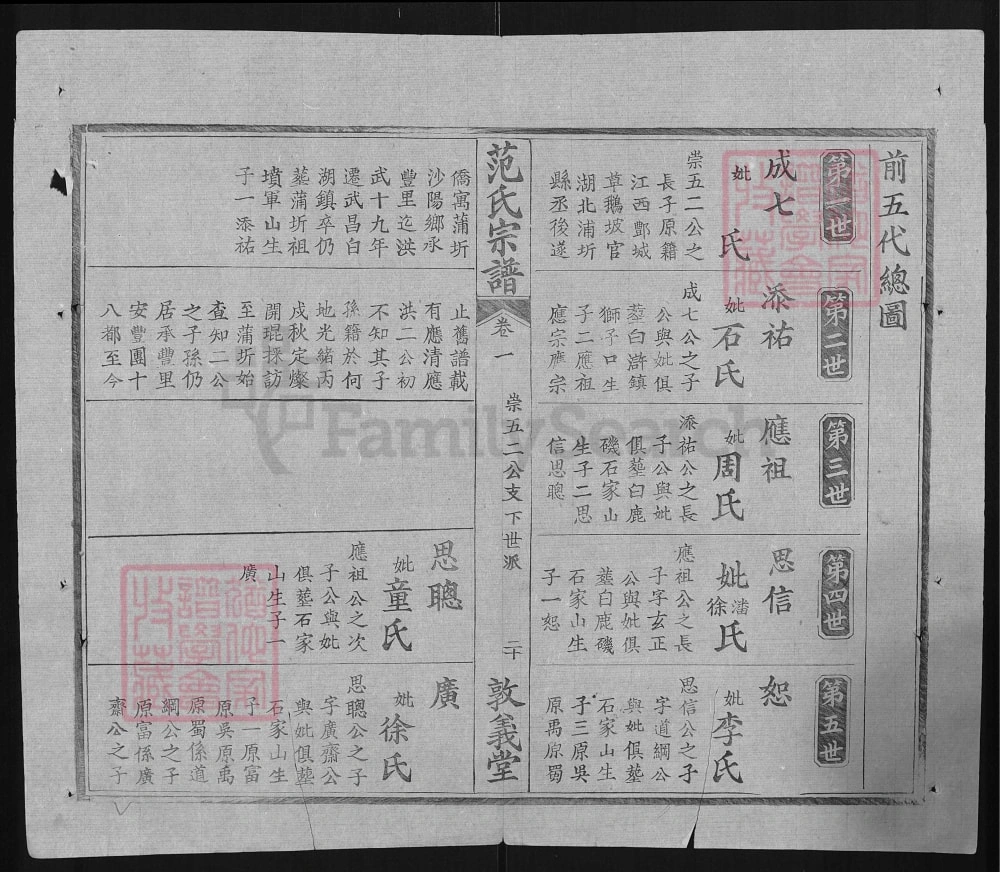 前五代總圖
第一世
成七
妣 氏
崇五二公之
長子原籍
江西酆城
草鵝坡官
湖北浦圻
縣丞後遂
第二世
添祐
妣石氏
成七公之子
公與妣俱
塟白滸鎮
獅子口生
子二應祖
應宗應宗
第三世
應祖
妣周氏
添祐公之長
子公與妣
俱塟白鹿
磯石家山
生子二思
信思聰
第四世
思信
妣潘徐氏
應祖公之長
子字玄正
公與妣俱
塟白鹿磯
石家山生
子一恕
第五世
恕
妣李氏
思信公之子
字道綱公
與妣俱塟
石家山生
子三原吳
原禹原蜀
范氏宗譜
卷一
崇五二公支下世派
二十
敦義堂
僑寓蒲圻
沙陽鄉永
豐里迄洪
武十九年
遷武昌白
湖鎮卒仍
塟蒲圻祖
墳軍山生
子一添祐
止舊譜載
有應清應
洪二公初
不知其子
孫籍於何
地光緒丙
戌秋定燦
開琨採訪
至蒲圻始
查知二公
之子孫仍
居承豐里
安豐團十
八都至今
思聰
妣童氏
應祖公之次
子公與妣
俱塟石家
山生子一
廣
廣
妣徐氏
思聰公之子
字廣齋公
與妣俱塟
石家山生
子一原富
原吳原禹
原蜀係道
綱公之子
原富係廣
齋公之子
FamilySearch